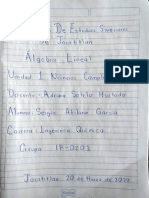 De Estudios Superiores
de Jocotitlán
Álgebra Lineal
Unidad 1 Números Complejos
Docente: Adriana Sotelo Hurtado
Alumno: Sergio Abilene Garcia
Carrera: Ingeniería Química
Grupo IF-0201
Jocotitlán, de Marzo de